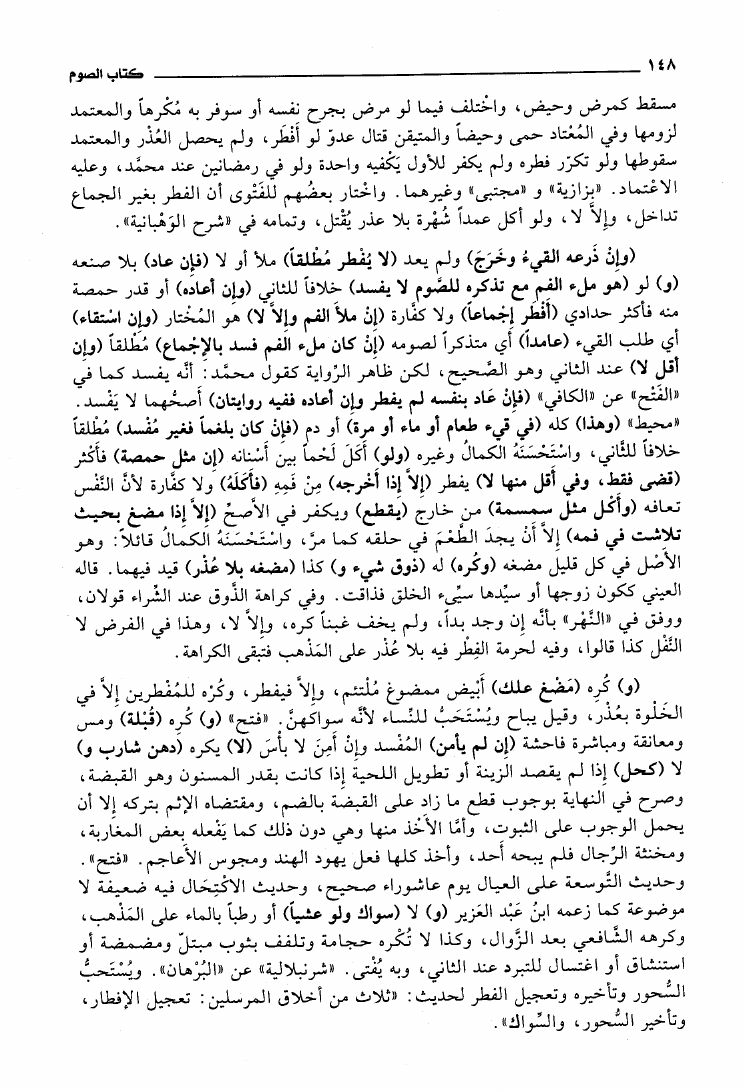 ١٤٨ كتاب الصوم
مسقط كمرض وحيض، واخْتلف فيما لو مرض بجرح نفسه أو سوفر به مُكْرهاً والمعتمد
لزومها وفي المُعْتاد حمى وحيضاً والمتيقن قتال عدوّ لو أَفْطَر، ولم يحصل العُذْر والمعتمد
سقوطها ولو تكرّر فطره ولم يكفر للأول يَكْفيه واحدة ولو في رمضانين عند محمَّد، وعليه
الاعْتماد. «بزازية» و «مجتبى» وغيرهما. واخْتار بعضُهم للفَتْوى أن الفطر بغير الجماع
تداخل، وإلاَّ لا، ولو أكل عمداً شُهْرة بلا عذر يُقْتل، وتمامه في «شرح الوَهْبانية».
(وإنْ ذَرعه القيءُ وخَرَجَ) ولم يعد (لا يُفْطر مُطْلقاً) ملأ أو لا (فإن عاد) بلا صنعه
(و) لو (هو ملء الفم مع تذكره للصَّوم لا يفسد) خلافاً للثاني (وإن أعاده) أو قدر حمصة
منه فأكثر حدادي (أَفْطر إجْماعاً) ولا كفَّارة (إنْ ملأ الفم وإلاَّ لا) هو المُخْتار (وإن اسْتقاء)
أي طلب القيء (عامداً) أي متذكراً لصومه (إنْ كان ملء الفم فسد بالإجْماع) مُطْلقاً (وإن
أقل لا) عند الثاني وهو الصَّحيح، لكن ظاهر الرِّواية كقول محمَّد: أنَّه يفسد كما في
«الفَتْح» عن «الكافي» (فإنْ عَاد بنفسه لم يفطر وإن أعاده ففيه روايتان) أصحُّهما لا يَفْسد.
«محيط» (وهذا) كله (في قيء طعام أو ماء أو مرة) أو دم (فإنْ كان بلغماً فغير مُفْسد) مُطْلقاً
خلافاً للثَّاني، واسْتَحْسَنَهُ الكمالُ وغيره (ولو) أَكَلَ لَحْماً بين أَسْنانه (إن مثل حمصة) فأَكْثر
(قضى فقط، وفي أقل منها لا) يفطر (إلاَّ إذا أخرجه) مِنْ فَمِهِ (فأَكَلَهُ) ولا كفَّارة لأنَّ النَّفْس
تعافه (وأكْل مثل سمسمة) من خارج (يقطع) ويكفر في الأصحّ (إلاَّ إذا مضغ بحيث
تلاشت في فمه) إلاَّ أنْ يجدَ الطَّعْمَ في حلقه كما مرَّ، واسْتَحْسَنَهُ الكمالُ قائلاً: وهو
الأصْل في كل قليل مضغه (وكُره) له (ذوق شيء و) كذا (مضغه بلا عُذْر) قيد فيهما. قاله
العيني ككون زوجها أو سيِّدها سيِّىء الخلق فذاقت. وفي كراهة الذَّوق عند الشِّراء قولان،
ووفق في «النَّهْر» بأنَّه إن وجد بداً، ولم يخف غبناً كره، وإلاَّ لا، وهذا في الفرض لا
النَّفْل كذا قالوا، وفيه لحرمة الفِطْر فيه بلا عُذْر على المَذْهب فتبقى الكراهة.
(و) كُره (مَضْغ علك) أَبْيض ممضوغ مُلْتئم، وإلاَّ فيفطر، وكُرْه للمُفْطرين إلاَّ في
الخَلْوة بعُذْر، وقيل يباح ويُسْتَحَبُّ للنِّساء لأنَّه سواكهنَّ. «فتح» (و) كُره (قُبْلة) ومس
ومعانقة ومباشرة فاحشة (إن لم يأمن) المُفْسد وإنْ أَمِنَ لا بأْسَ (لا) يكره (دهن شارب و)
لا (كحل) إذا لم يقصد الزينة أو تطويل اللحية إذا كانت بقدر المسنون وهو القبضة،
وصرح في النهاية بوجوب قطع ما زاد على القبضة بالضم، ومقتضاه الإثم بتركه إلا أن
يحمل الوجوب على الثبوت، وأمَّا الأَخْذ منها وهي دون ذلك كما يَفْعله بعض المغاربة،
ومخنثة الرِّجال فلم يبحه أحد، وأخذ كلها فعل يهود الهند ومجوس الأعاجم. «فتح».
وحديث التَّوسعة على العيال يوم عاشوراء صحيح، وحديث الاكْتِحَال فيه ضعيفة لا
موضوعة كما زعمه ابنُ عَبْد العَزير (و) لا (سواك ولو عشياً) أو رطباً بالماء على المَذْهب،
وكرهه الشَّافعي بعد الزَّوال، وكذا لا تُكْره حجامة وتلفف بثوب مبتلّ ومضمضة أو
استنشاق أو اغتسال للتبرد عند الثاني، وبه يُفْتى. «شرنبلالية» عن «البُرْهان». ويُسْتَحبُّ
السُّحور وتأخيره وتعجيل الفطر لحديث: «ثلاث من أخلاق المرسلين: تعجيل الإفطار،
وتأخير السُّحور، والسِّواك».